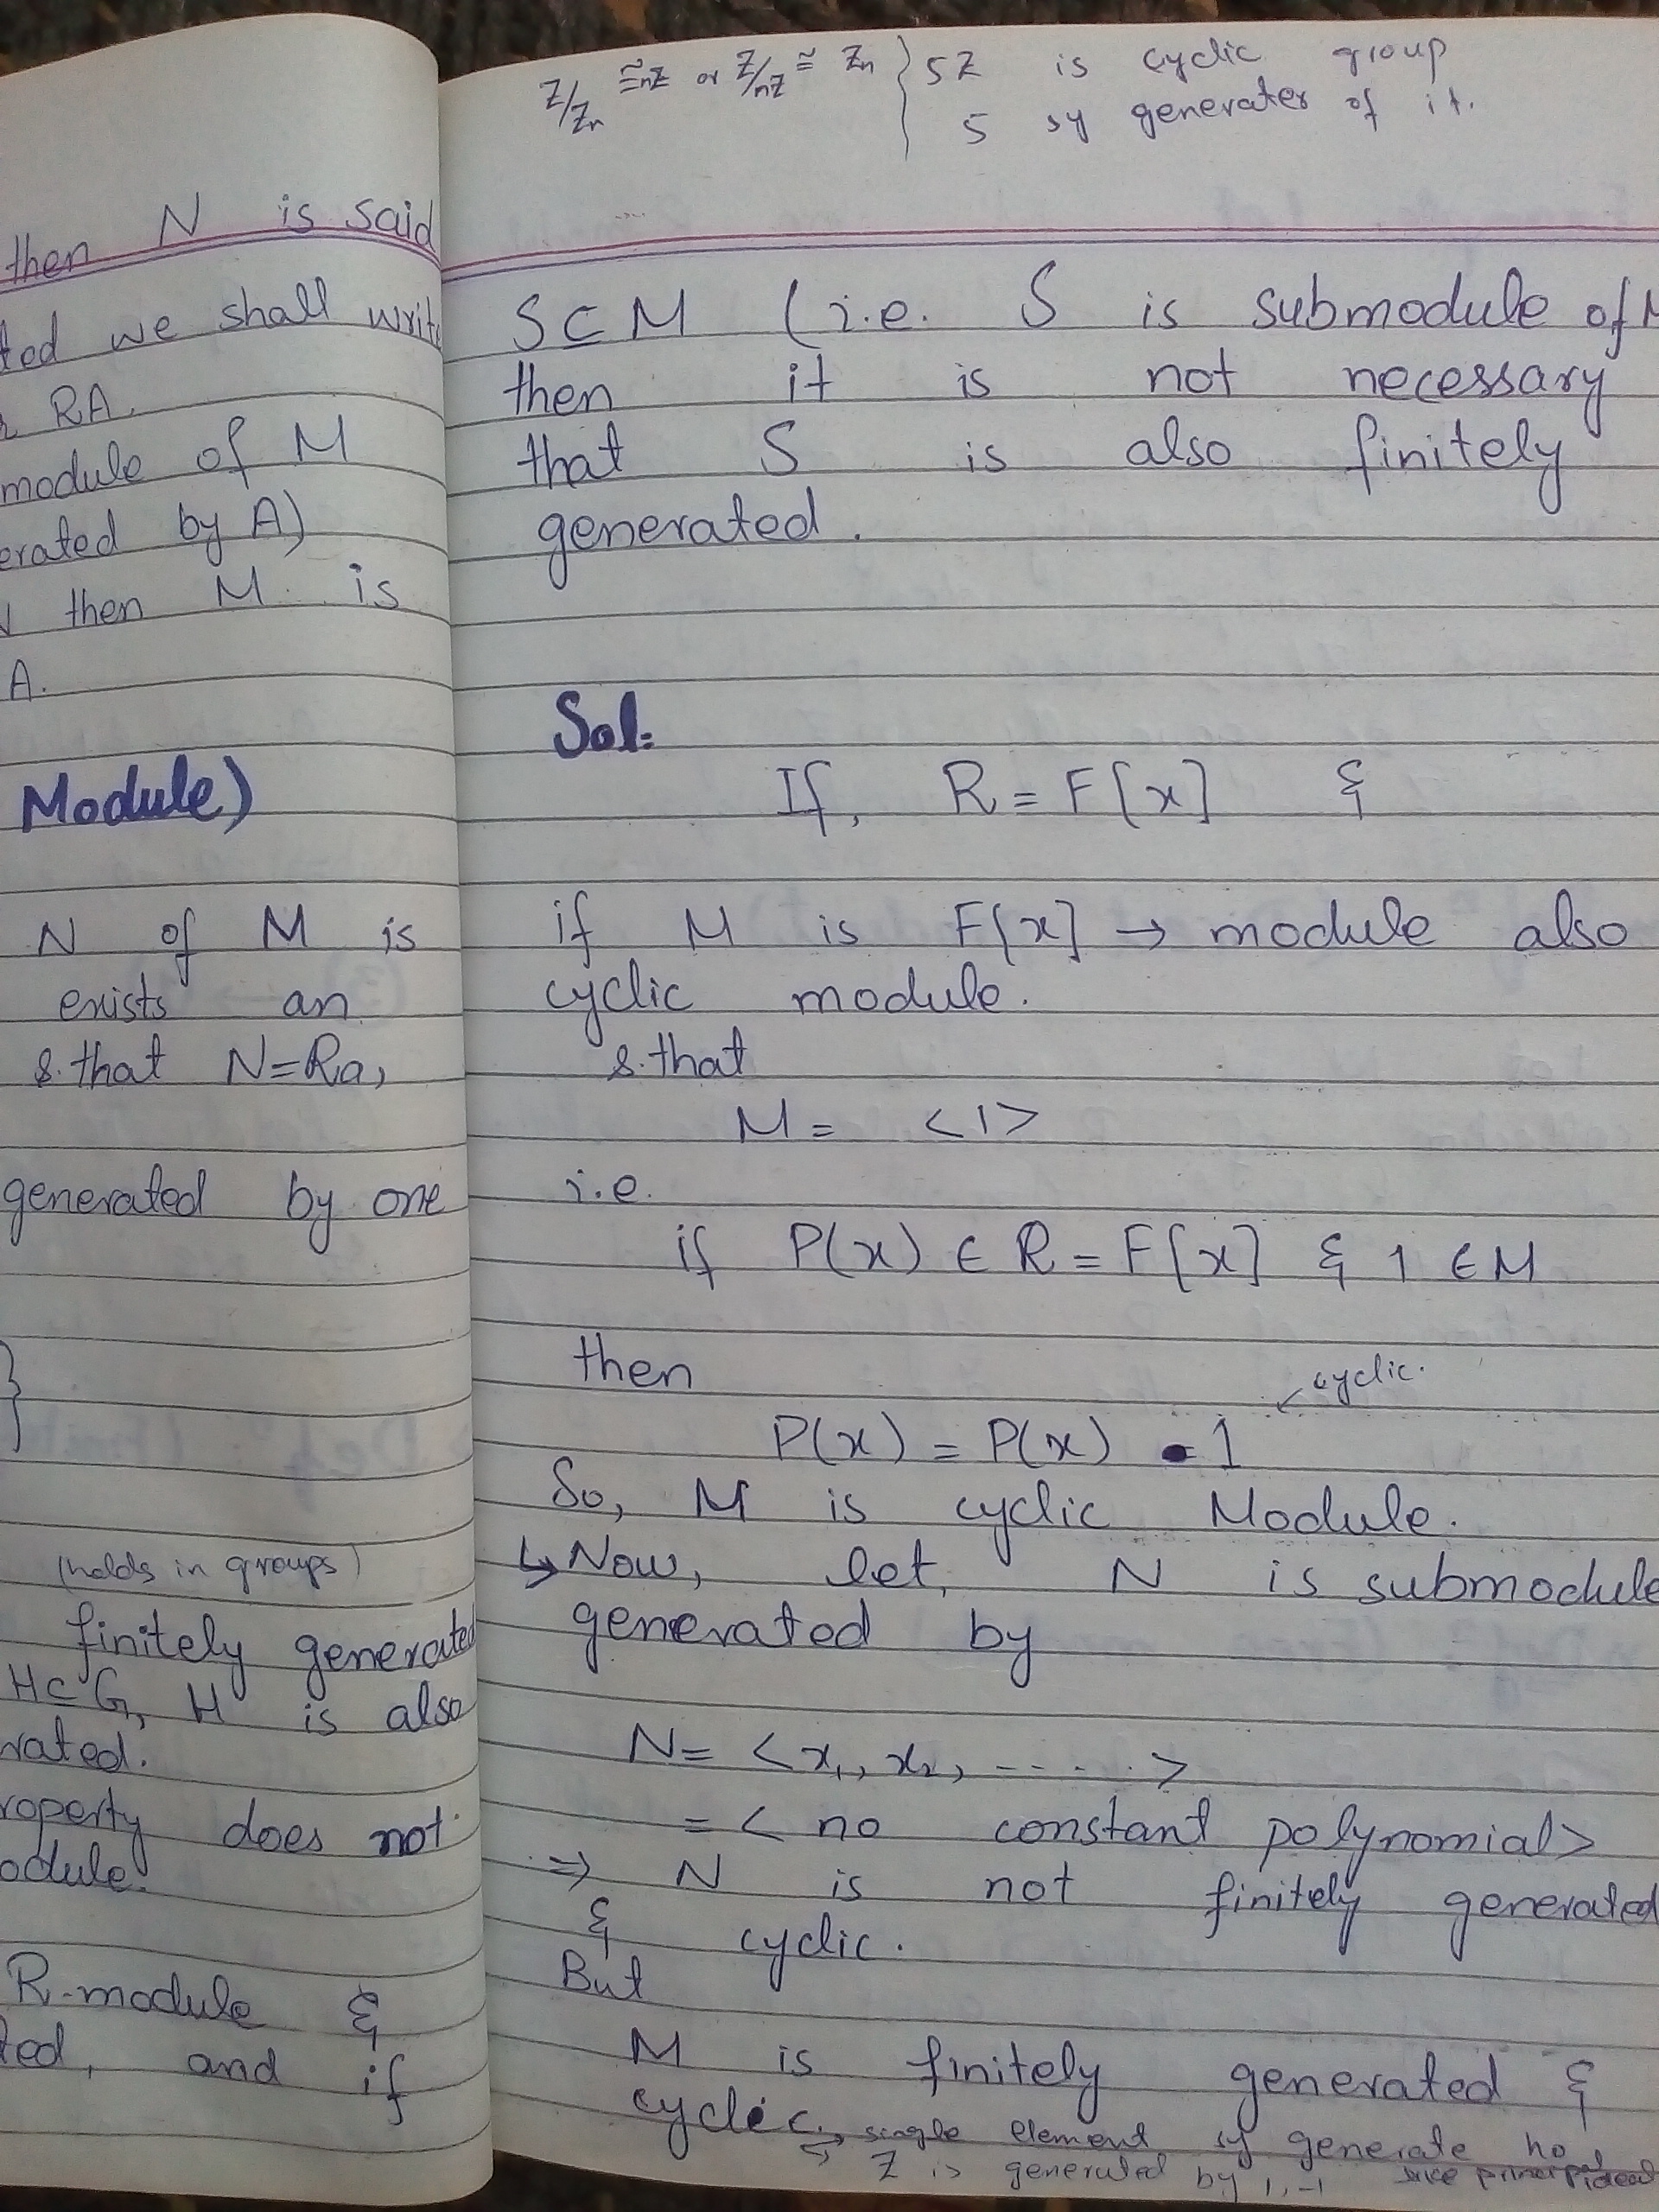 then N is said
ted we shall write
RA.
module of M
erated by A)
then M is
A.
Module)
N of M is
exists an
s.that N=Ra,
generated by one
}
(holds in groups)
finitely generated
H⊂G, H is also
rated.
roperty does not
odule.
R-module &
ted, and if
Z/Zn ≅nZ or Z/nZ ≅ Zn } 5Z is cyclic group
5 sy generater of it.
S⊆M (i.e. S is submodule of M
then it is not necessary
that S is also finitely
generated.
Sol:
If, R = F[x] &
if M is F[x] → module also
cyclic module.
s.that
M = <1>
i.e.
if P(x) ∈ R = F[x] & 1 ∈ M
then
cyclic.
P(x) = P(x) · 1
So, M is cyclic Module.
↳ Now, let, N is submodule
generated by
N= <x₁, x₂, ----->
= < no constant polynomial>
=> N is not finitely generated
& cyclic.
But
M is finitely generated &
cyclic. → single element sy generate ho
→ Z is generated by 1, -1 like principal ideal